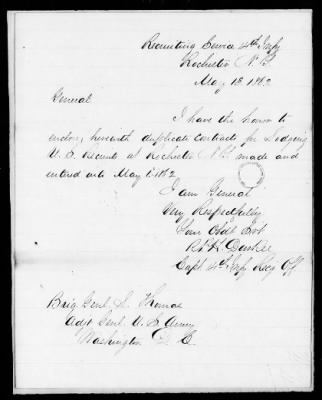 Recruiting Service 4th Infy
Rochester N.Y.
May 13 1862
General
I have the honor to
enclose, herewith duplicate contracts for Lodging
U.S. Recruits at Rochester N.Y. made and
entered into May 1st 1862
I am General
Very Respectfully
Your Obdt Svt
Capt 4th Infy Recg Off
Brig Genl L. Thomas
Adjt Genl U.S. Army
Washington D.C.